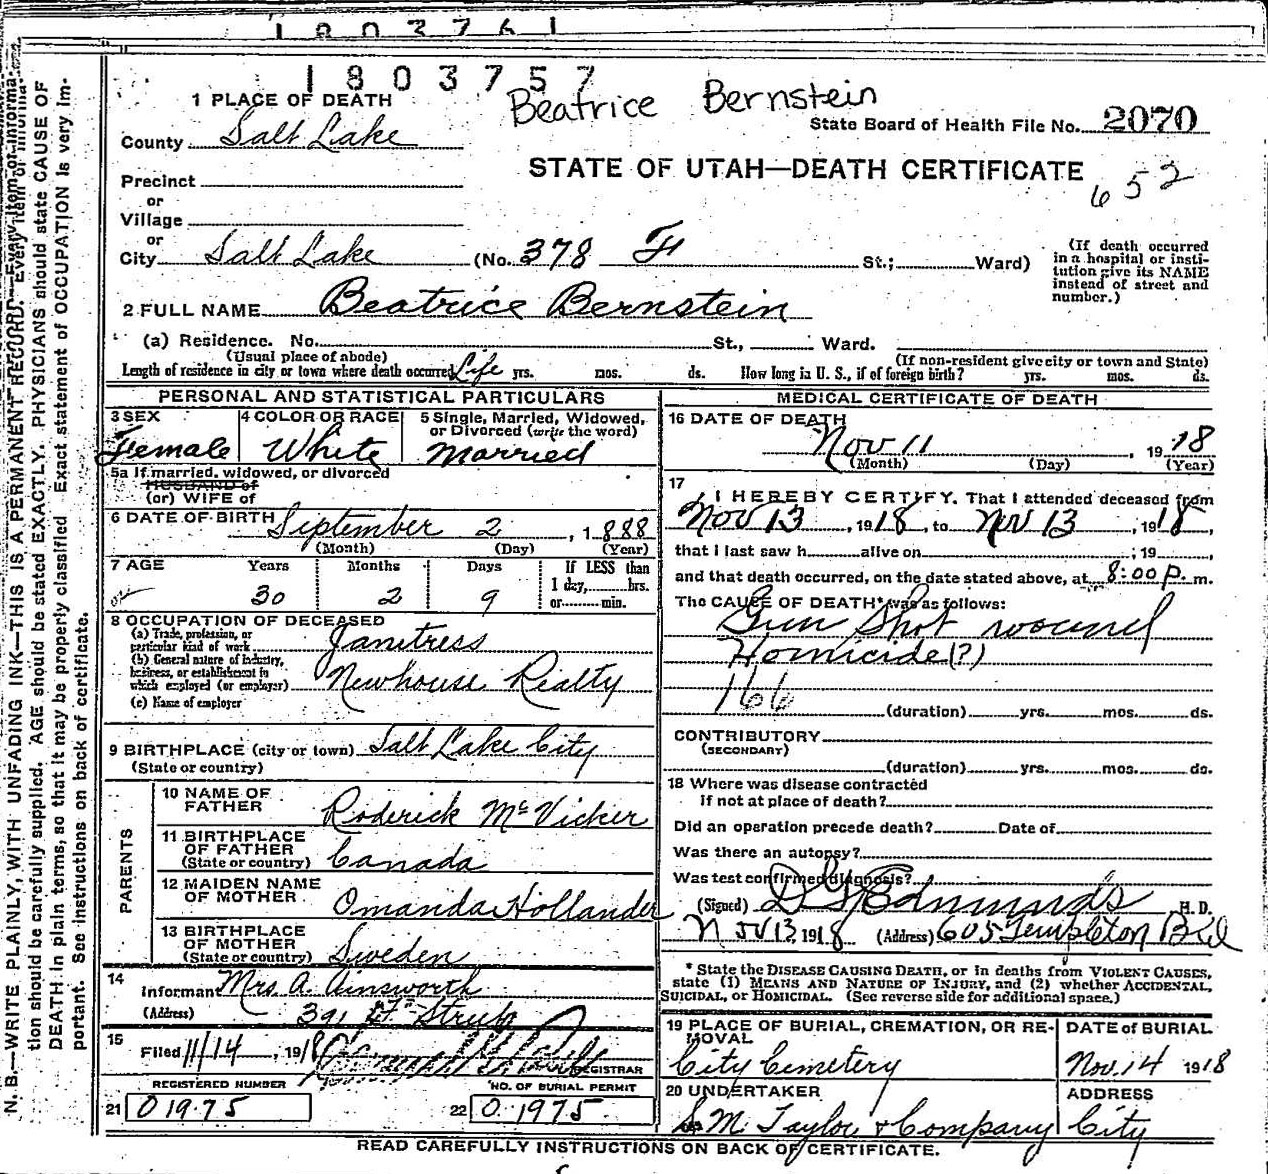 1803761
1803757
Beatrice Bernstein
1 PLACE OF DEATH
State Board of Health File No. 2070
County Salt Lake
STATE OF UTAH—DEATH CERTIFICATE
652
Precinct
or
Village
or
City Salt Lake (No. 378 F St.; Ward)
(If death occurred in a hospital or institution give its NAME instead of street and number.)
2 FULL NAME Beatrice Bernstein
(a) Residence. No. St., Ward.
(Usual place of abode) (If non-resident give city or town and State)
Length of residence in city or town where death occurred Life yrs. mos. ds. How long in U. S., if of foreign birth? yrs. mos. ds.
PERSONAL AND STATISTICAL PARTICULARS
3 SEX 4 COLOR OR RACE 5 Single, Married, Widowed, or Divorced (write the word)
Female White Married
5a If married, widowed, or divorced
HUSBAND of
(or) WIFE of
6 DATE OF BIRTH September 2, 1888
(Month) (Day) (Year)
7 AGE Years Months Days If LESS than
1 day, hrs.
or min.
30 2 9
8 OCCUPATION OF DECEASED
(a) Trade, profession, or particular kind of work Janitress
(b) General nature of industry, business, or establishment in which employed (or employer) Newhouse Realty
(c) Name of employer
9 BIRTHPLACE (city or town) Salt Lake City
(State or country)
PARENTS
10 NAME OF FATHER Roderick McVicker
11 BIRTHPLACE OF FATHER (State or country) Canada
12 MAIDEN NAME OF MOTHER Omanda Hollander
13 BIRTHPLACE OF MOTHER (State or country) Sweden
14
Informant Mrs. A. Ainsworth
(Address) 391 F Street
15
Filed 11/14, 1918 REGISTRAR
REGISTERED NUMBER NO. OF BURIAL PERMIT
21 01975 22 0.1975
MEDICAL CERTIFICATE OF DEATH
16 DATE OF DEATH
Nov 11, 1918
(Month) (Day) (Year)
17
I HEREBY CERTIFY. That I attended deceased from
Nov 13, 1918, to Nov 13, 1918,
that I last saw h alive on ; 19 ,
and that death occurred, on the date stated above, at 8:00 p. m.
The CAUSE OF DEATH* was as follows:
Gun Shot wound
Homicide (?)
166
(duration) yrs. mos. ds.
CONTRIBUTORY
(SECONDARY)
(duration) yrs. mos. ds.
18 Where was disease contracted
if not at place of death?
Did an operation precede death? Date of
Was there an autopsy?
Was test confirmed diagnosis?
(Signed) D G Edmunds H. D.
Nov 13, 1918 (Address) 605 Templeton Bld
* State the DISEASE CAUSING DEATH, or in deaths from VIOLENT CAUSES, state (1) MEANS AND NATURE OF INJURY, and (2) whether ACCIDENTAL, SUICIDAL, or HOMICIDAL. (See reverse side for additional space.)
19 PLACE OF BURIAL, CREMATION, OR REMOVAL DATE of BURIAL
City Cemetery Nov. 14 1918
20 UNDERTAKER ADDRESS
S. M. Taylor & Company City
READ CAREFULLY INSTRUCTIONS ON BACK OF CERTIFICATE.
N. B.—WRITE PLAINLY, WITH UNFADING INK—THIS IS A PERMANENT RECORD. Every item of information should be carefully supplied. AGE should be stated EXACTLY. PHYSICIANS should state CAUSE OF DEATH in plain terms, so that it may be properly classified. Exact statement of OCCUPATION is very important. See instructions on back of certificate.